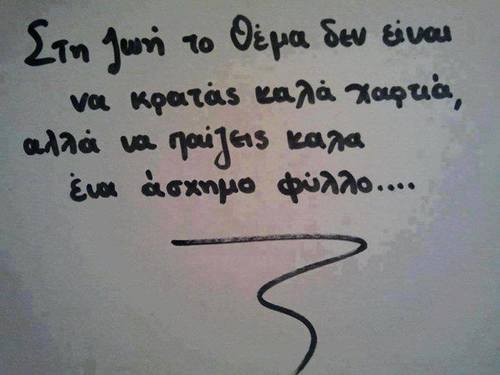 Στη ζωή το θέμα δεν είναι
να κρατάς καλά χαρτιά,
αλλά να παίζεις καλα
ένα άσχημο φύλλο....